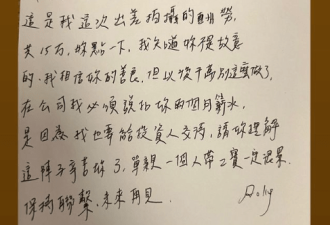 這是我這次出差拍攝的酬勞
共15万,妳點一下,我知道妳從故意
的.我相信妳的善良,但以後千萬別這麼做了,
在公司我必須說你妳的個月薪水,
是因為我也要給投資人交待,請妳理解
這陣子辛苦妳了,單親一個人帶2寶一定很累.
保持聯繫.未來再見